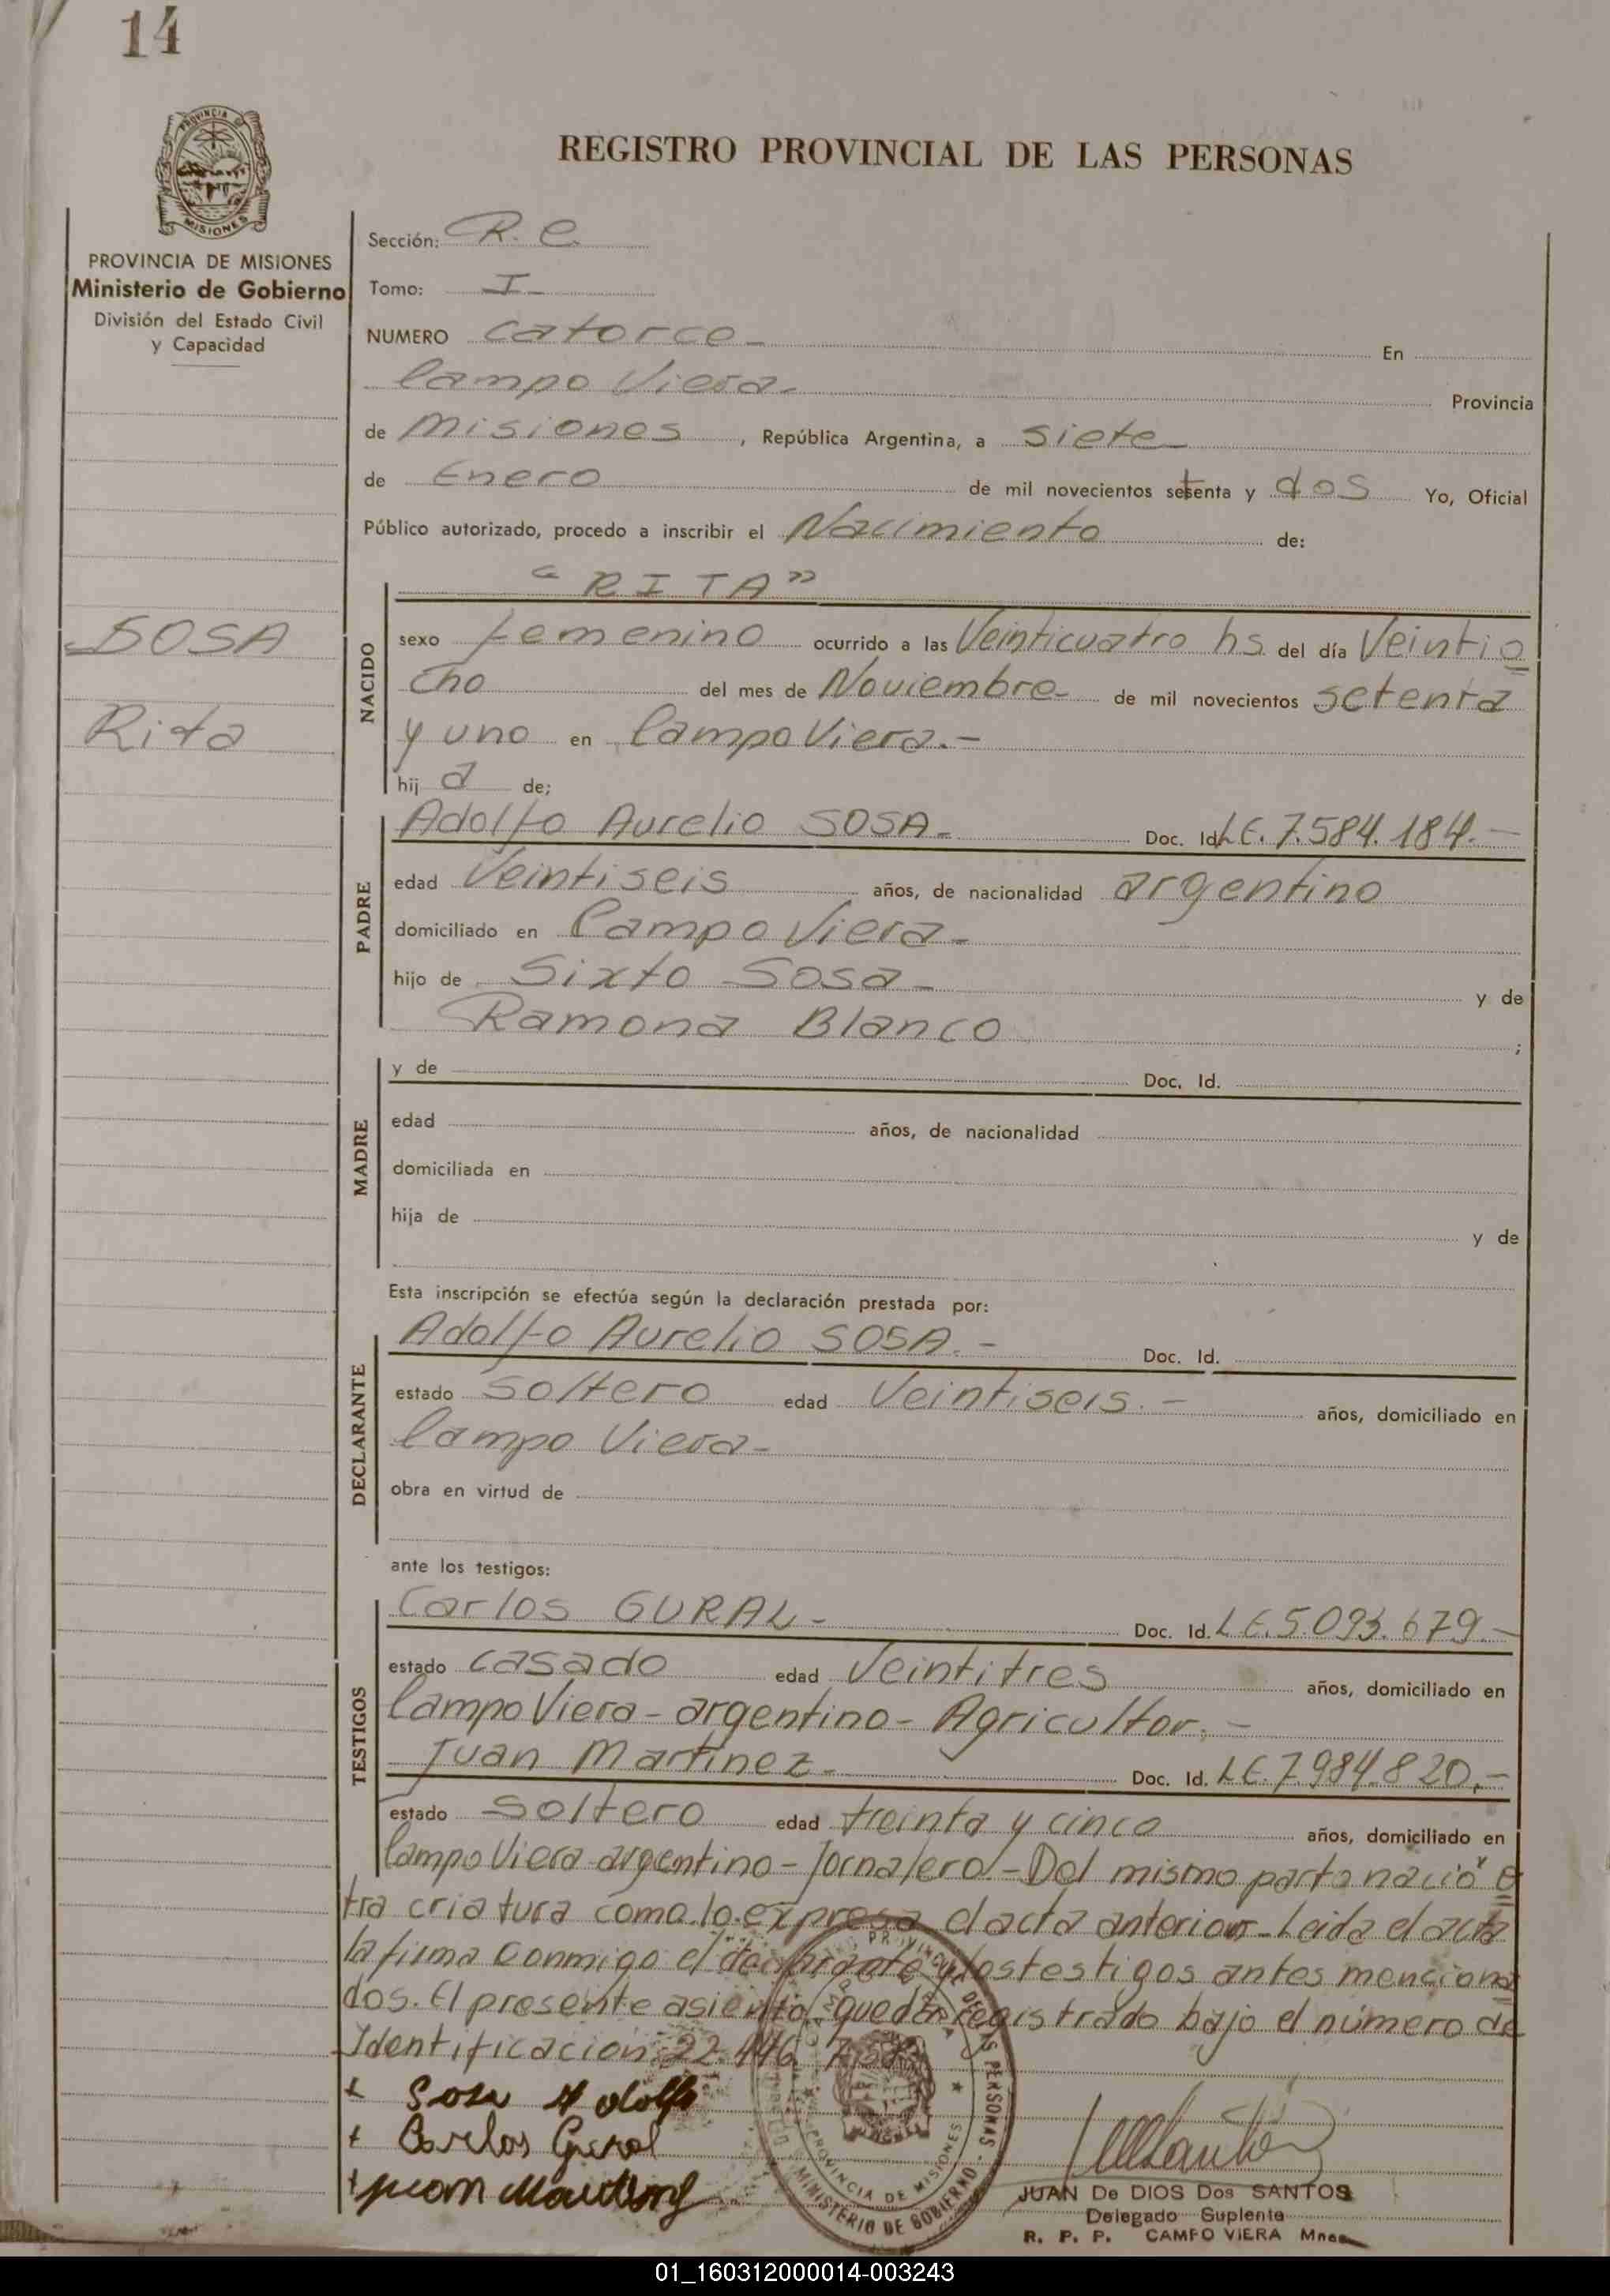 14
REGISTRO PROVINCIAL DE LAS PERSONAS
PROVINCIA DE MISIONES
Ministerio de Gobierno
División del Estado Civil
y Capacidad
SOSA
Rita
Sección: R. C.
Tomo: I -
NUMERO catorce - En
Campo Viera -
Provincia
de Misiones , República Argentina, a siete -
de Enero de mil novecientos setenta y dos Yo, Oficial
Público autorizado, procedo a inscribir el Nacimiento de:
"RITA"
NACIDO
sexo femenino ocurrido a las Veinticuatro hs del día Veintio
cho del mes de Noviembre - de mil novecientos setenta
y uno en Campo Viera. -
hij a de;
PADRE
Adolfo Aurelio SOSA - Doc. Id. L.E. 7.584.184. -
edad Veintiseis años, de nacionalidad argentino
domiciliado en Campo Viera -
hijo de Sixto Sosa - y de
Ramona Blanco ;
MADRE
y de Doc. Id.
edad años, de nacionalidad
domiciliada en
hija de y de
Esta inscripción se efectúa según la declaración prestada por:
DECLARANTE
Adolfo Aurelio SOSA. - Doc. Id.
estado soltero edad Veintiseis. - años, domiciliado en
Campo Viera -
obra en virtud de
ante los testigos:
TESTIGOS
Carlos GURAL - Doc. Id. L.E. 5.093.679. -
estado casado edad Veintitres años, domiciliado en
Campo Viera - argentino - Agricultor. -
Juan Martinez - Doc. Id. L.E. 7.984.820. -
estado soltero edad treinta y cinco años, domiciliado en
Campo Viera - argentino - Jornalero. - Del mismo parto nació o
tra criatura como lo expresa el acta anterior - Leida el acta
la firma conmigo el declarante y los testigos antes menciona
dos. El presente asiento queda registrado bajo el número de
Identificación 22.446.
+ Sosa Adolfo
+ Carlos Gural
+ Juan Martinez
PROVINCIA DE MISIONES
MINISTERIO DE GOBIERNO
JUAN De DIOS Dos SANTOS
Delegado Suplente
R. P. P. CAMPO VIERA Mnes
01_160312000014-003243